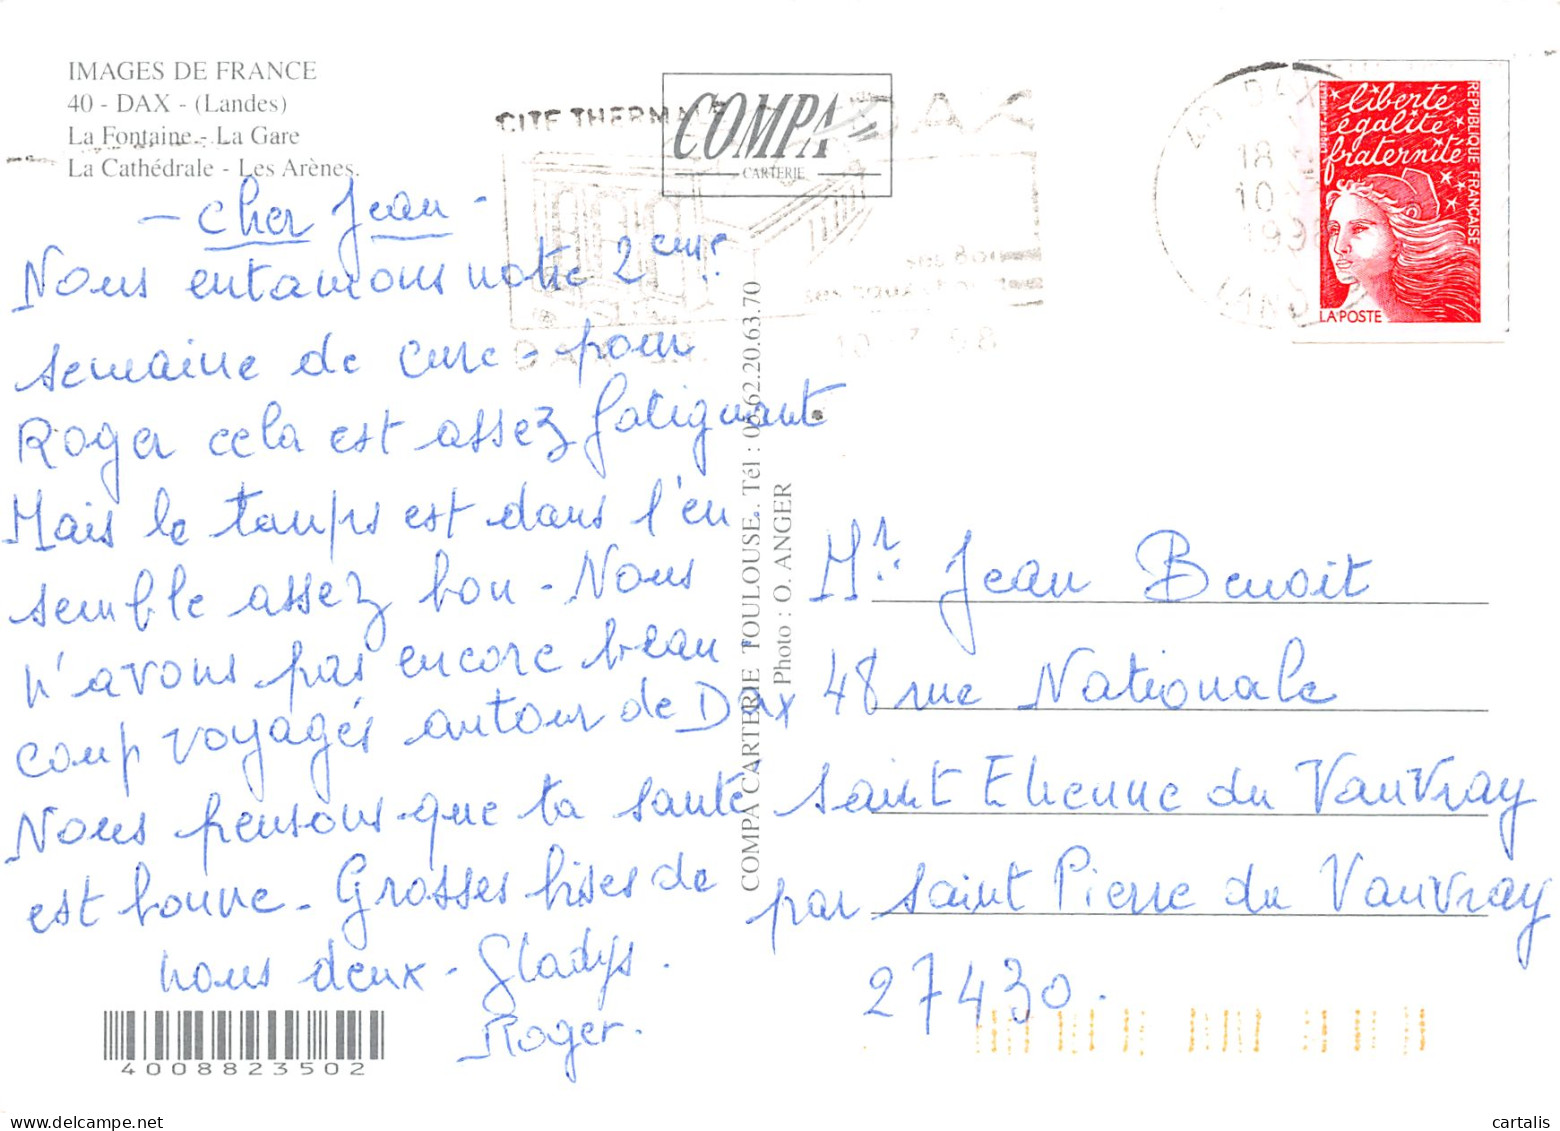 IMAGES DE FRANCE
40 - DAX - (Landes)
La Fontaine - La Gare
La Cathédrale - Les Arènes.
- Cher Jean -
Nous entamons notre 2ème
semaine de cure - pour
Roger cela est assez fatiguant
Mais le temps est dans l'en
semble assez bon - Nous
n'avons pas encore beau
coup voyagés autour de Dax
Nous pensons que ta santé
est bonne - Grosses bises de
nous deux - Gladys.
Roger.
4008823502
CITE THERMALE
DAX
COMPA
CARTERIE
COMPA CARTERIE TOULOUSE. Tél : 05.62.20.63.70
Photo : O. ANGER
40 DAX
18
10
199
LAND
liberté
égalité
fraternité
REPUBLIQUE FRANÇAISE
LA POSTE
Mr. Jean Benoit
48 rue Nationale
Saint Etienne du Vauvray
par Saint Pierre du Vauvray
27430.
cartalis